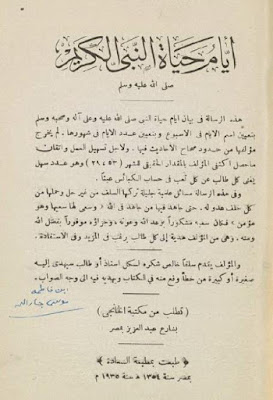 أيام حياة النبى الكريم
صلى الله عليه وسلم
هذه الرسالة فى بيان ايام حياة النبى صلى الله عليه وعلى آله وصحبه وسلم
بتعيين اسم الايام فى الاسبوع وتعيين عدد الايام فى شهورها. لم يخرج
مؤلفها من حدود صحاح الاحاديث فيها. ولاجل تسهيل العمل واتقان
ماحصل اكتفى المؤلف بالمقدار الحقيقى للشهر (٥٣ر٢٩) وهو عدد سهل
يغنى كل طالب عن كل تعب فى حساب الكبائس عيناً.
وفى هذه الرسالة مسائل علمية جليلة تركها السلف من غير حل رحلها من
كل خلف عدوله. حتى جاهد فيها من جاهد فى الله « وسعى لها سعيها وهو
مؤمن » فكان سعيه مشكوراً بوعد الله وعونه، وجزاؤه موفوراً بفضل الله
ومنه. وهى من المؤلف هدية إلى كل طالب يرغب فى المزيد وفى الاستفادة.
والمؤلف يتقدم سلفاً خالص شكره لسكل استاذ أو طالب سيهدى إليه
صغيرة أو كبيرة من خطأ وقع منه فى الكتاب ويهديه فيه إلى وجه الصواب.
ابن فاطمة
موسى جار الله
(تطلب من مكتبة الخانجى)
بشارع عبد العزيز بمصر
طبعت بمطبعة السعادة
بمصر سنة ١٣٥٤ هـ سنة ١٩٣٥ م